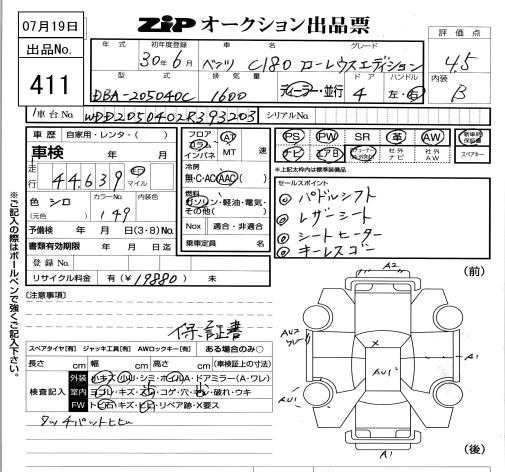 07月19日
出品No.
411
ZIP オークション出品票
評価点
4.5
内装
B
年式 初年度登録 車名 グレード
30年6月 ベンツ C180 ローレウスエディション
型式 排気量 ディーラー・並行 ドア ハンドル
DBA-205040C 1600 4 左・右
車台No. WDD2050402R393203 シリアルNo.
車歴 自家用・レンタ・( )
車検 年 月
走行 44,639 km マイル
色 シロ カラーNo. 149 内装色
(元色)
予備検 年 月 日(3・8)No.
書類有効期限 年 月 日迄
登録No.
リサイクル料金 有(¥19880) 未
フロア コラム インパネ AT MT 速
冷房
無・C・AC(AAC)
燃料
ガソリン・軽油・電気・その他( )
Nox 適合・非適合
乗車定員 名
PS PW SR 革 AW 新車時保証書
ナビ エアB 社外ナビ 社外AW スペアキー
※上記太枠内は標準装備品
セールスポイント
◎パドルシフト
◎レザーシート
◎シートヒーター
◎キーレスゴー
[注意事項]
保証書
スペアタイヤ[有] ジャッキ工具[有] AWロックキー[有] ある場合のみ○
長さ cm 幅 cm 高さ cm (車検証上の寸法)
検査記入
外装 小キズ・小凹・シミ・ホイルA・ドアミラー(A・ワレ)
室内 ヨゴレ・キズ・スレ・コゲ・穴・ハガレ・破れ・ウキ
FW トビ石・キズ・ヒビ・リペア跡・X要ス
タッチパットヒビ
※ご記入の際はボールペンで強くご記入下さい。
(前)
A2
AU2
X
AU1
A1
AU1
A1
(後)